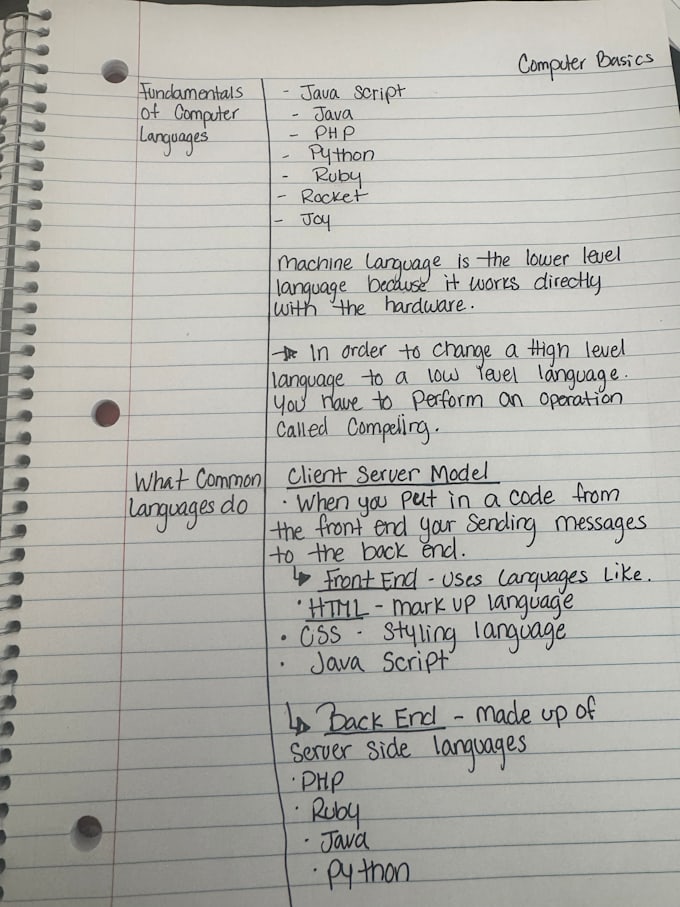 Computer Basics
Fundamentals
of Computer
Languages
- Java Script
- Java
- PHP
- Python
- Ruby
- Rocket
- Joy
Machine Language is the lower level
language because it works directly
with the hardware.
→ In order to change a High level
language to a low level language.
You have to Perform an operation
called Compeling.
What Common
Languages do
Client Server Model
· When you put in a code from
the front end your Sending messages
to the back end.
↳ Front End - uses Languages Like.
· HTML - mark up language
· CSS - Styling language
· Java Script
↳ Back End - made up of
Server Side languages
· PHP
· Ruby
· Java
· Python